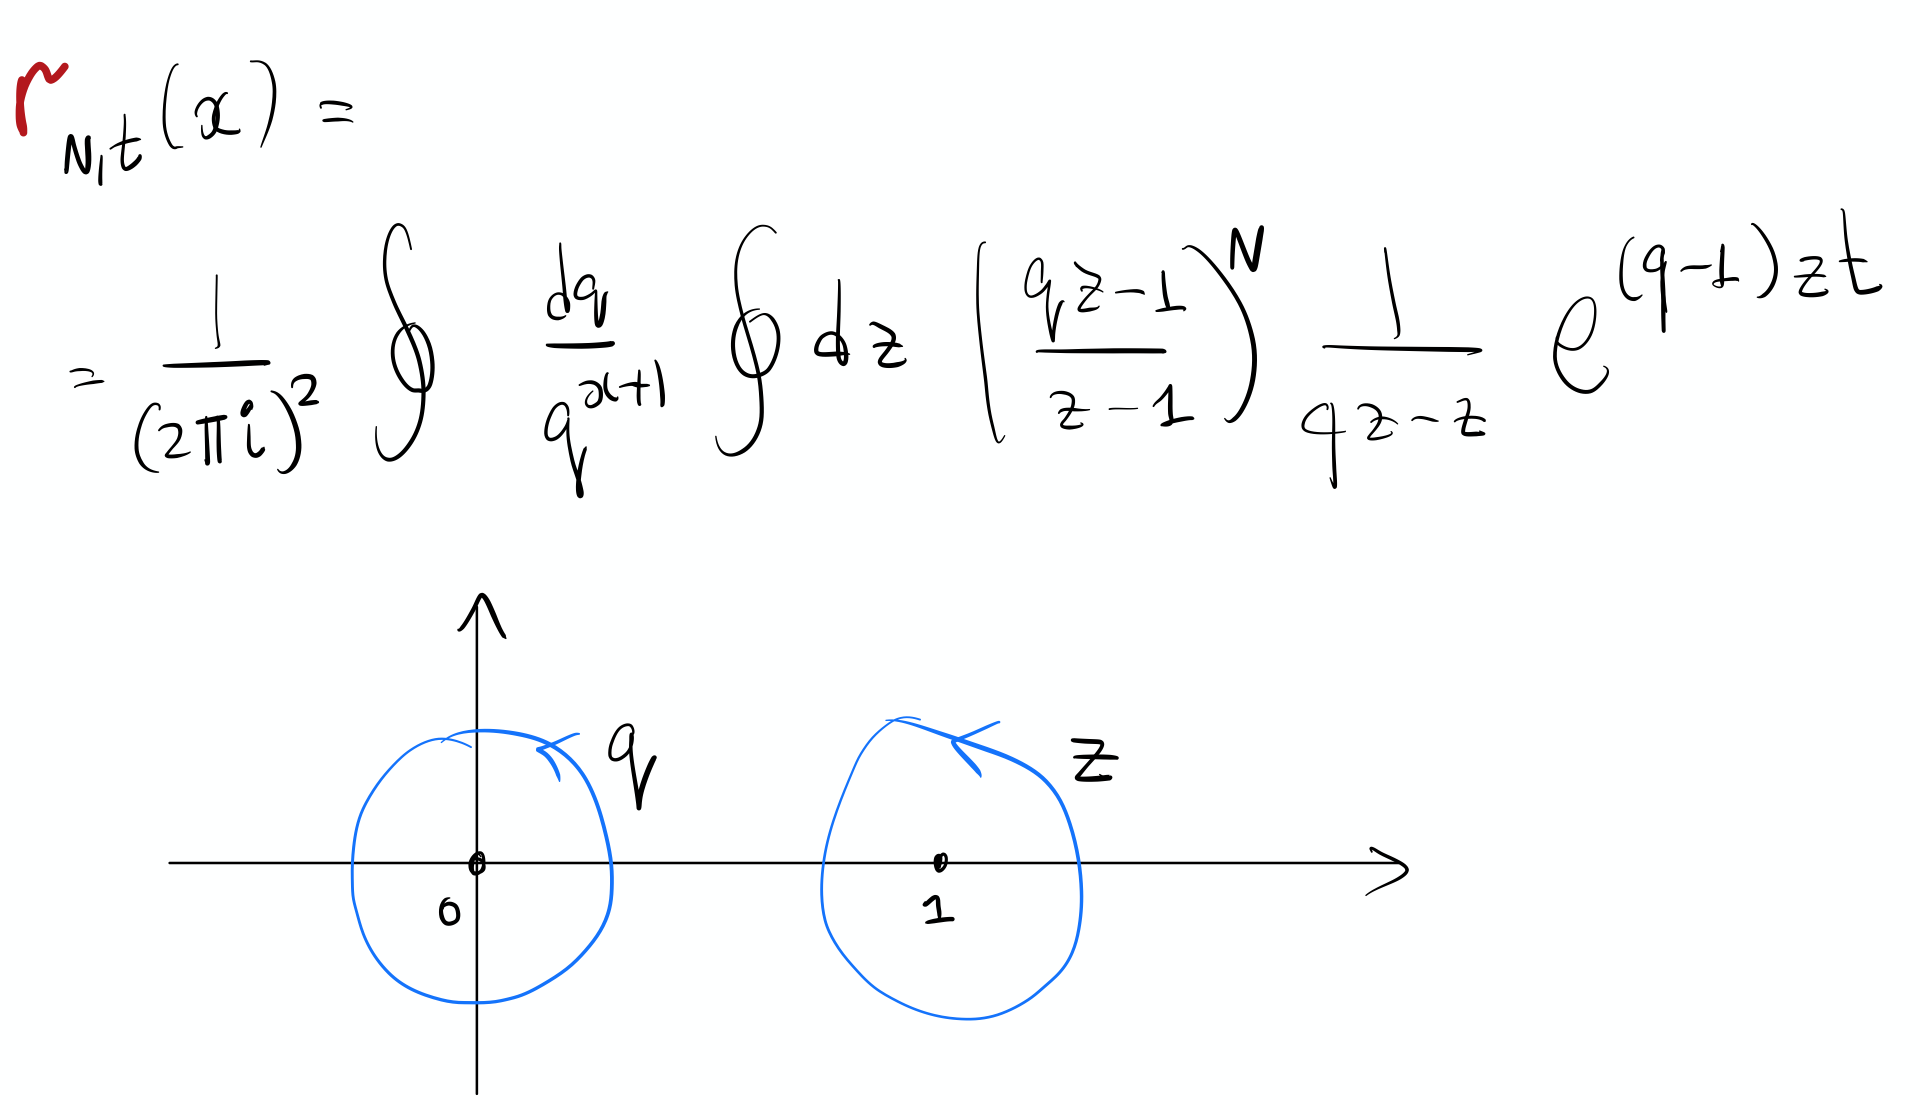 r_{N,t}(x) =
= \frac{1}{(2πi)^2} ∮ \frac{dq}{q^{x+1}} ∮ dz \left( \frac{qz-1}{z-1} \right)^N \frac{1}{qz-z} e^{(q-1)zt}
q z
0 1